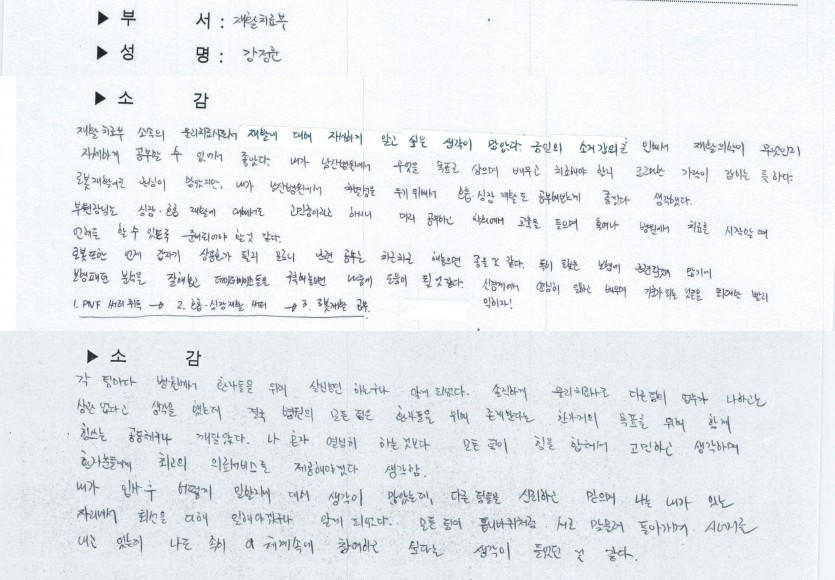 ▶ 부 서 : 재활치료부
▶ 성 명 : 강정훈
▶ 소 감
재활치료부 소속의 물리치료사로서 재활에 대해 자세하게 알고 싶은 생각이 많았다. 금일의 소개강의로 인해서 재활의학이 무엇인지
자세하게 공부할 수 있어서 좋았다. 내가 남산병원에서 무엇을 목표로 삼으며 배우고 치료해야 할지 고민이 가닥이 잡히는 듯 하다.
로봇재활치료 관심이 많았지만, 내가 남산병원에서 호흡·심장 재활도 공부해보는게 좋겠다 생각했다.
부원장님도 심장·호흡 재활에 대해서도 고민중이라고 하시니 미리 공부하고 학회에서 교육을 들으며 혹여나 병원에서 치료를 시작할 때
언제든 할 수 있도록 준비되어야 할 것 같다.
로봇 또한 언제 갑자기 상용화가 될지 모르니 관련 공부는 차근차근 해놓으면 좋을 것 같다. 특히 보행에 많기에
보행패턴 분석을 잘해놓고 데이터베이스들을 구축해놓으면 나중에 도움이 될 것 같다. 신경계에서 열심히 일하고 배우며 빨리
1. PNF 써티 취득 → 2. 호흡·심장재활 써티 → 3. 로봇재활 공부. 익히자!
▶ 소 감
각 팀마다 병원에서 환자들을 위해 알게 되었다. 솔직하게 물리치료사로 다른팀의 업무가 나하고는
상관 없다고 생각을 했는데 결국 병원의 모든 팀은 환자들을 위해 존재한다는 한가지의 목표를 위해 함께
힘쓰는 공동체구나 깨달았다. 나 혼자 열심히 하는것보다 모든 팀이 힘을 합해서 고민하고 생각하며
환자분들에게 최고의 의료서비스를 제공해야겠다 생각함.
내가 입사 후 어떻게 일할지에 대해 생각이 많았는데, 다른 팀들을 신뢰하고 믿으며 나는 내가 있는
자리에서 최선을 다해 일해야겠구나 알게 되었다. 모든 팀이 톱니바퀴처럼 서로 맞물려 돌아가며 시너지를
내고 있는데 나도 속히 이 체계속에 참여하고 싶다는 생각이 들었던 것 같다.